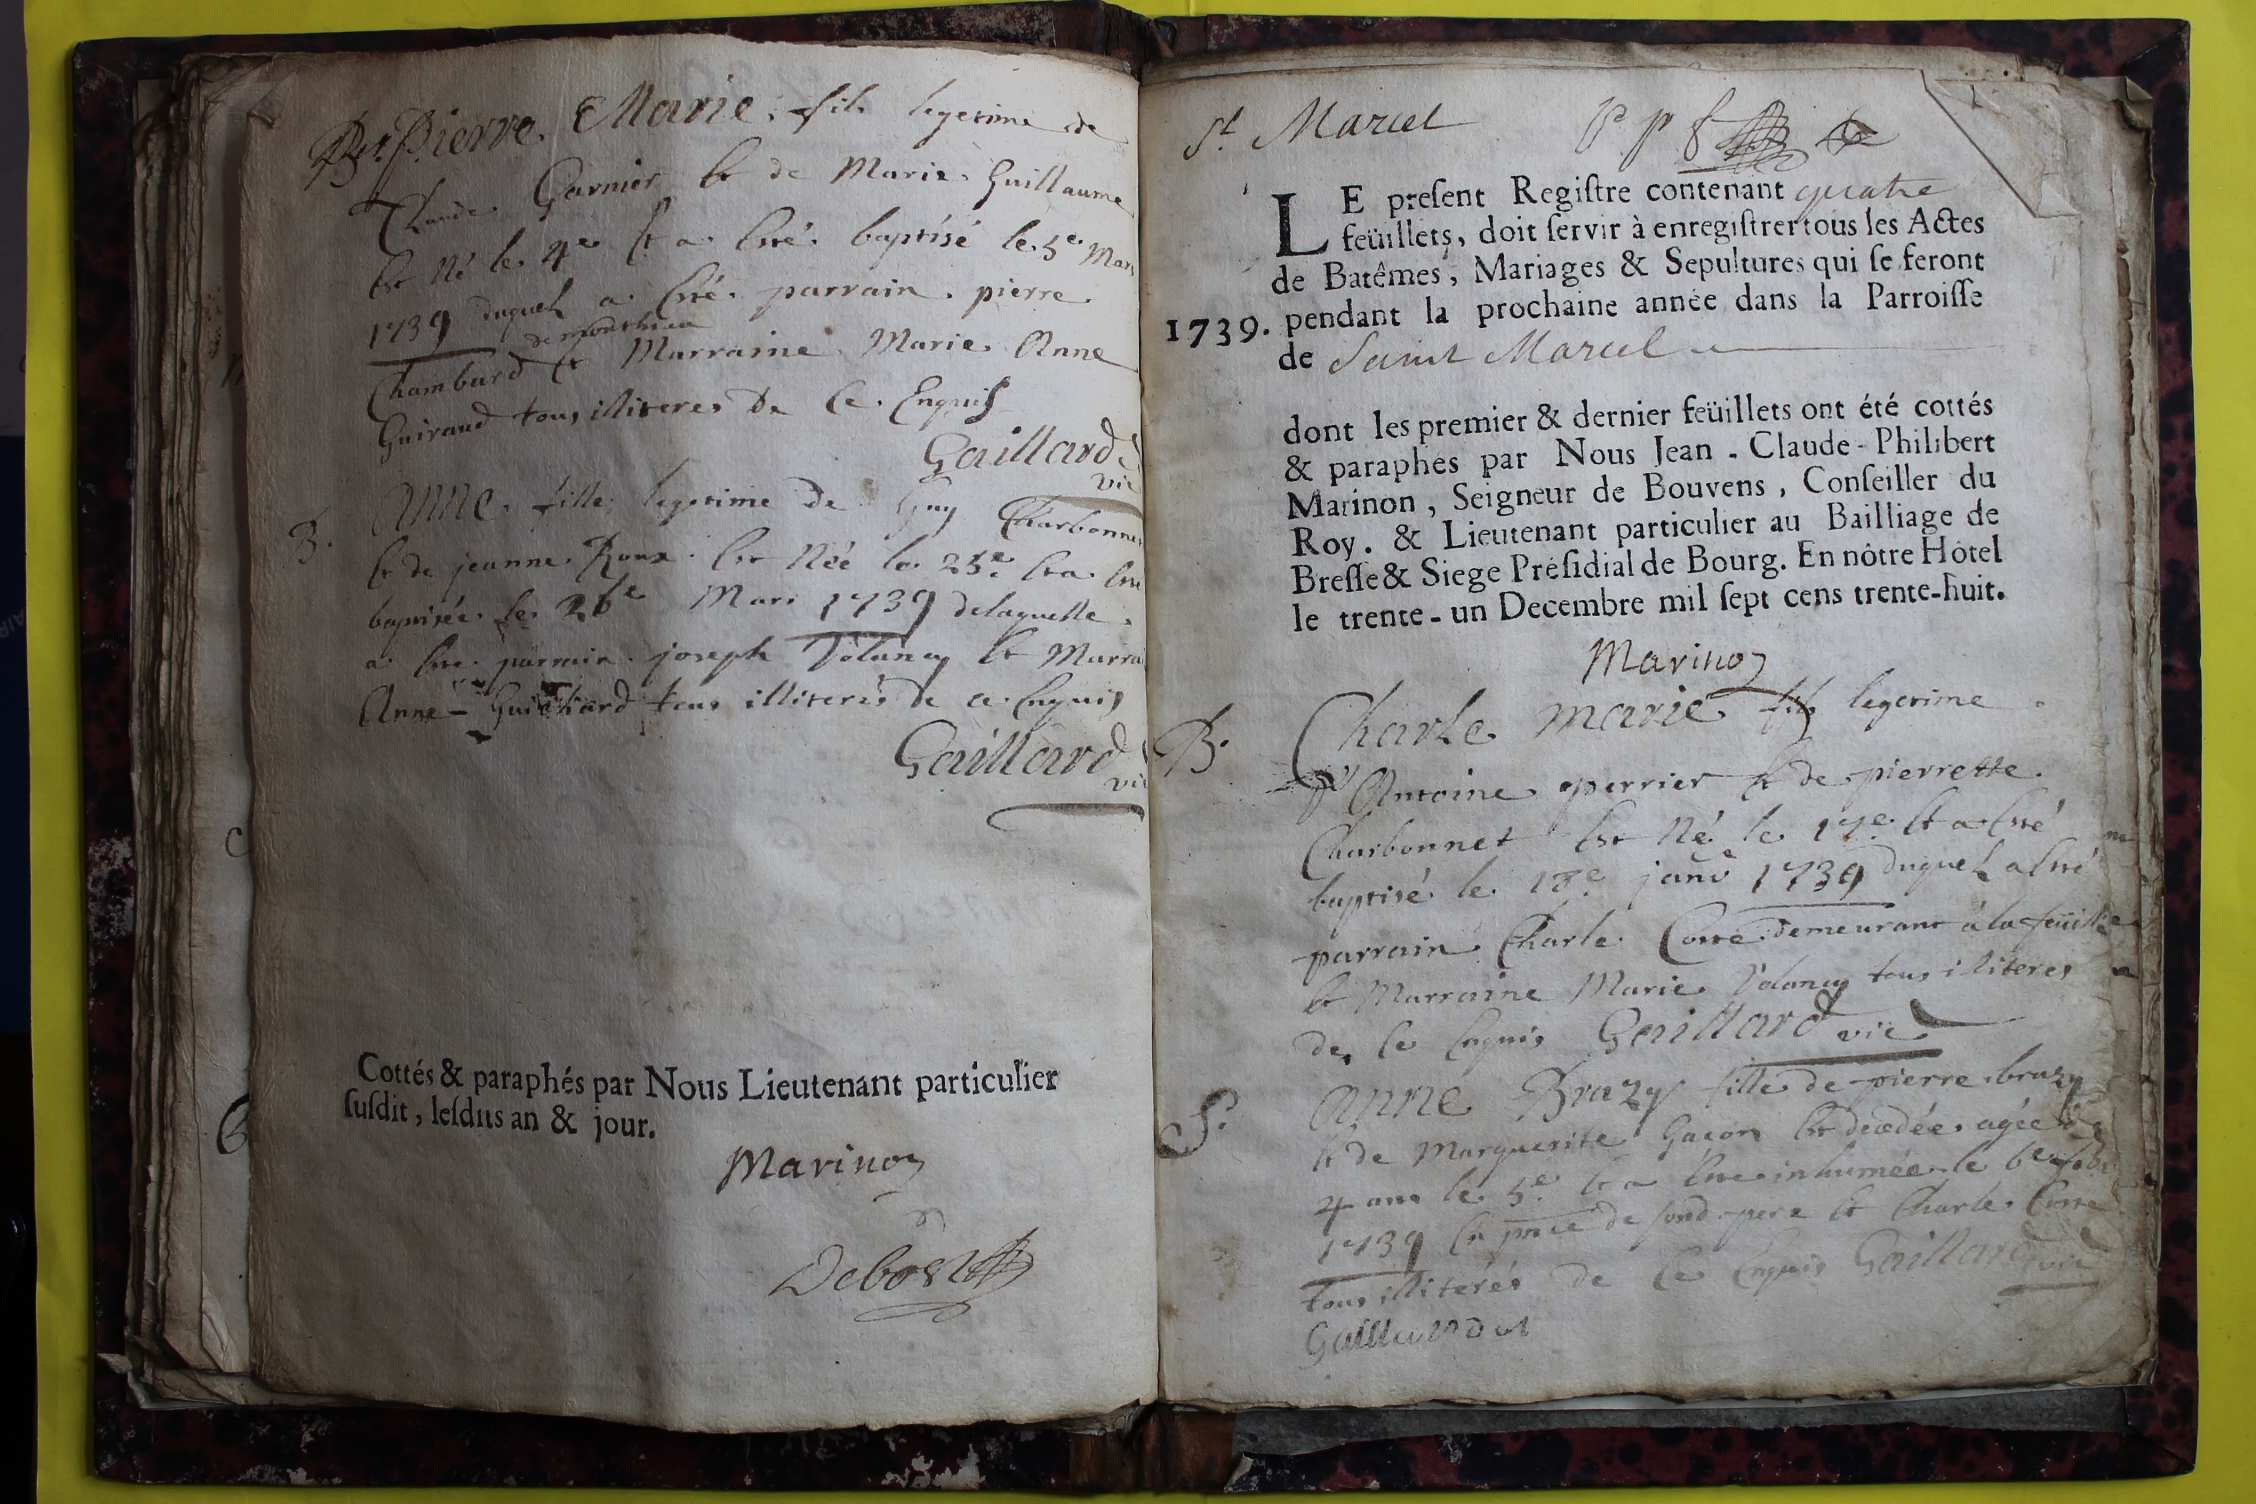 B. Pierre Marie fils legetime de
Claude Garnier Et de Marie Guillaume
Est Né le 4e Et a Esté baptisé le 5e Mars
1739 duquel a Esté parrain pierre
de monthieu
Chambard Et Marraine Marie Anne
Guiraud tous illiteres De Ce Enquis
Gaillard
vic
B. Anne fille legetime de Guy Charbonnet
Et de jeanne Roux Est Née le 25e Et a Esté
baptisée le 26e Mars 1739 delaquelle
a Esté parrain joseph Volancy Et Marrai
Anne Guichard tous illiterés de ce Enquis
Gaillard
vic
Cottés & paraphés par Nous Lieutenant particulier
susdit, lesdits an & jour.
Marinon
Debost
St Marcel
LE present Registre contenant quatre
feüillets, doit servir à enregistrer tous les Actes
de Batêmes, Mariages & Sepultures qui se feront
1739. pendant la prochaine année dans la Parroisse
de Saint Marcel
dont les premier & dernier feüillets ont été cottés
& paraphés par Nous Jean-Claude-Philibert
Marinon, Seigneur de Bouvens, Conseiller du
Roy. & Lieutenant particulier au Bailliage de
Bresse & Siege Présidial de Bourg. En nôtre Hôtel
le trente-un Decembre mil sept cens trente-huit.
Marinon
B. Charle Marie fils legetime
d'Antoine perrier Et de pierrette
Charbonnet Est Né le 17e Et a Esté
baptisé le 18e janv 1739 duquel a Esté
parrain Charle Coste demeurant à la feüille
Et Marraine Marie Volancy tous illiteres
de Ce Enquis Gaillard vic
S. Anne Brazy fille de pierre brazy
Et de Marguerite Gacon Est decedée agée de
4 ans le 5e Et a Esté inhumée le 6e febr
1739 En pnce de sond pere Et Charle Coste
tous illiterés de Ce Enquis Gaillard vic